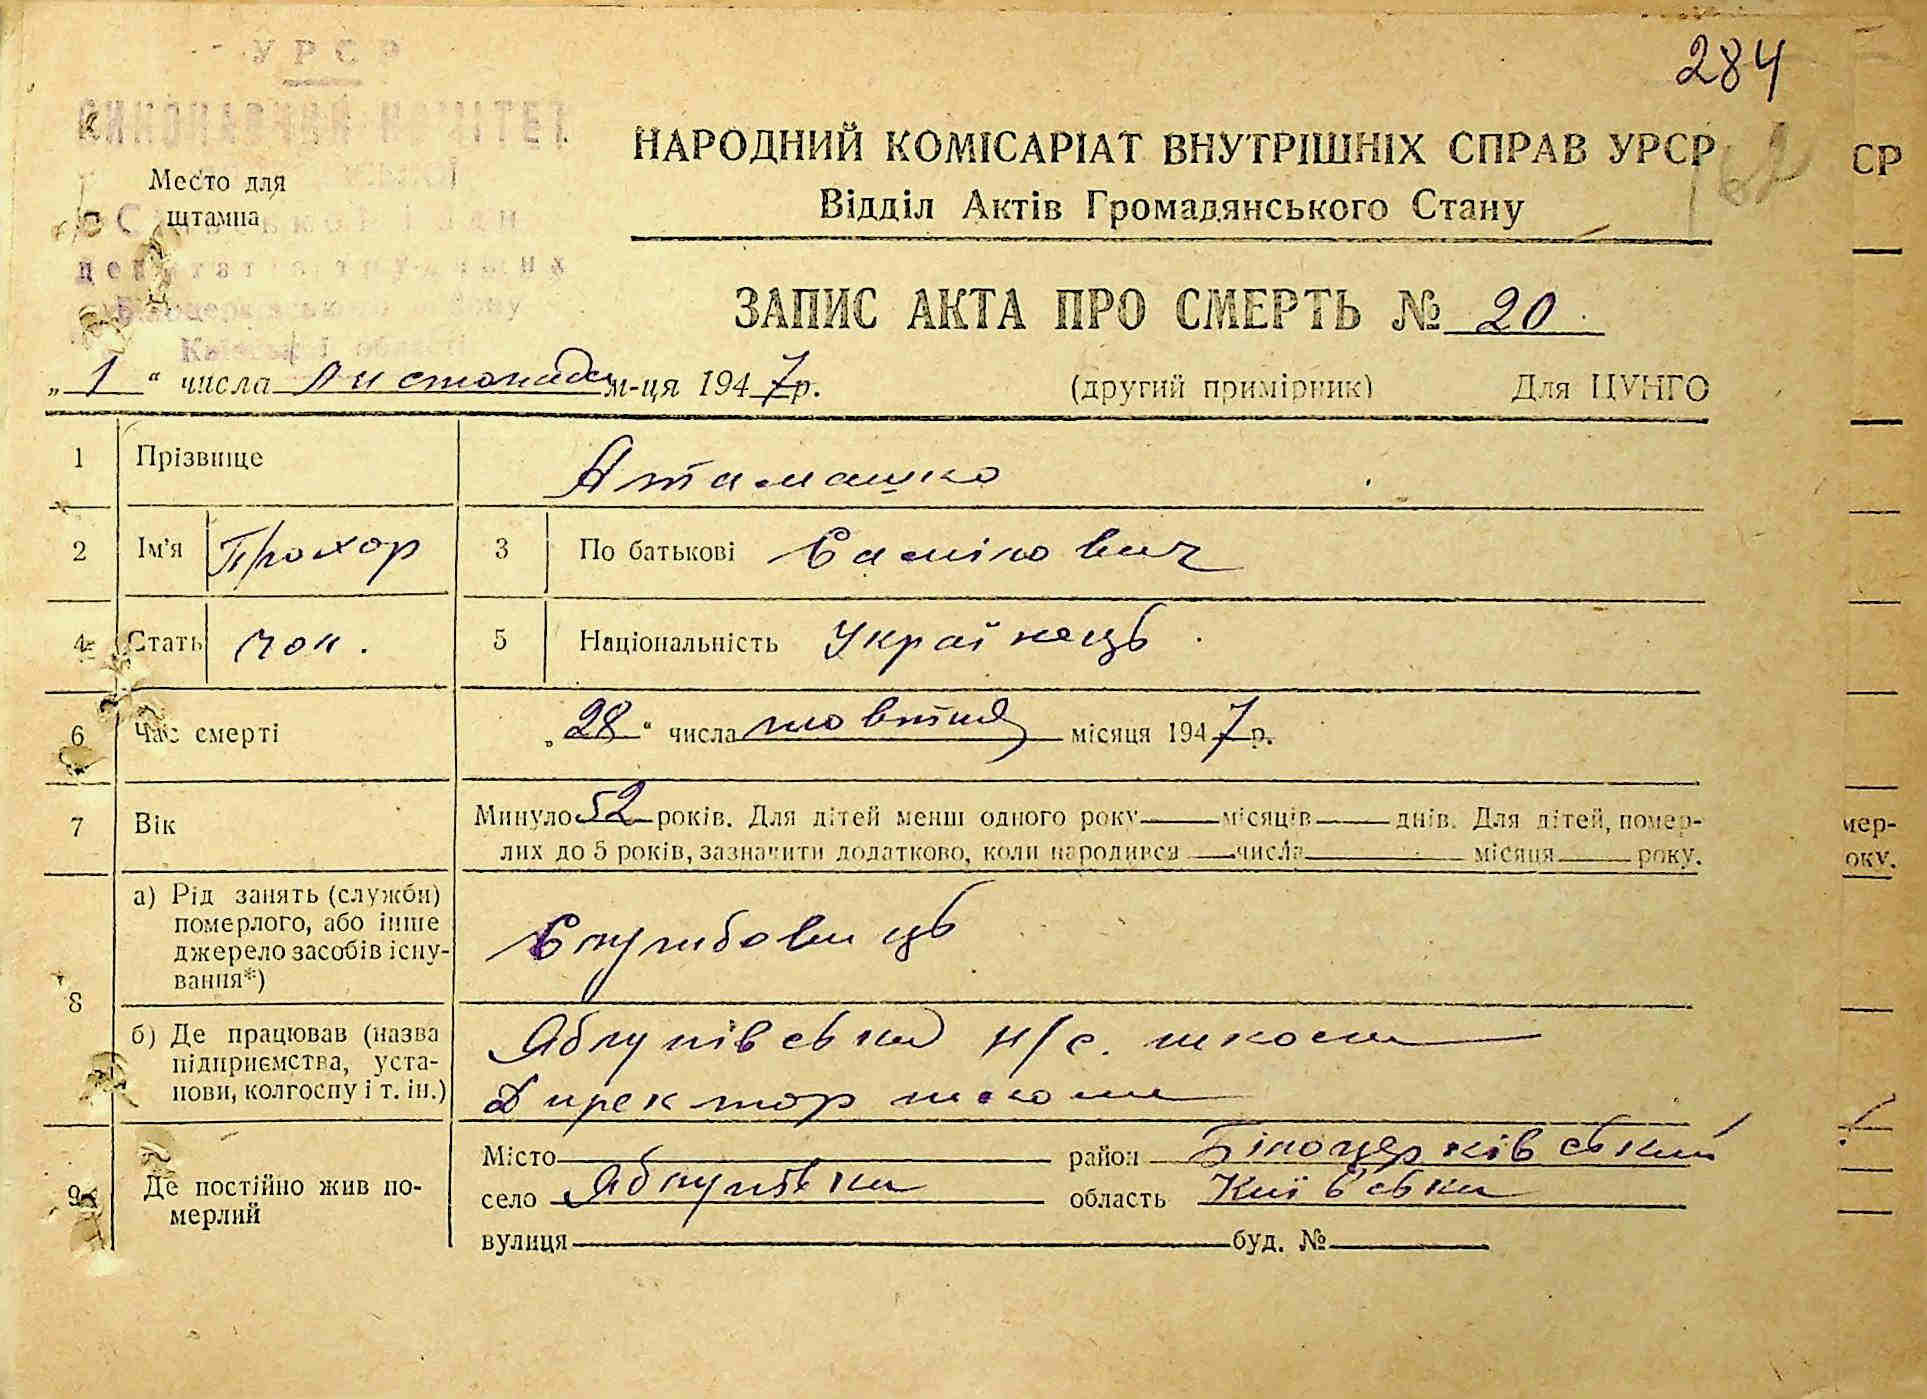 УРСР
ВИКОНАВЧИЙ КОМІТЕТ
284
НАРОДНИЙ КОМІСАРІАТ ВНУТРІШНІХ СПРАВ УРСР
162
СР
Место для
штампа
Відділ Актів Громадянського Стану
депутатів трудящих
Білоцерківського району
Київської області
ЗАПИС АКТА ПРО СМЕРТЬ № 20
„ 1 “ числа Листопада м-ця 1947 р. (другий примірник) Для ЦУНГО
1 Прізвище Атамашко
2 Ім’я Прохор 3 По батькові
4 Стать чол. 5 Національність Українець
6 Час смерті „28“ числа жовтня місяця 1947 р.
7 Вік Минуло 52 років. Для дітей менш одного року місяців днів. Для дітей, помер-
лих до 5 років, зазначити додатково, коли народився числа місяця року.
мер-
оку.
8 а) Рід занять (служби) померлого, або інше джерело засобів існування*) Службовець
б) Де працював (назва підприємства, установи, колгоспу і т. ін.) Яблунівська н/с. школа
Директор школи
9 Де постійно жив померлий Місто район Білоцерківський
село Яблунівка область Київська
вулиця буд. №